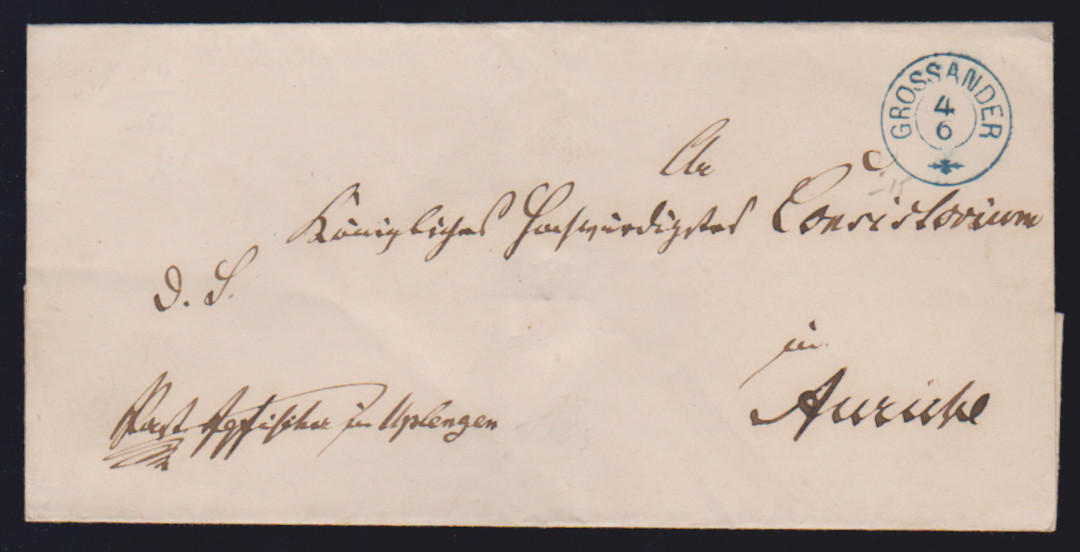 GROSSANDER
4
6
An
Königliches Hochwürdigstes Consistorium
D. S.
in
Aurich
Past in Uplengen